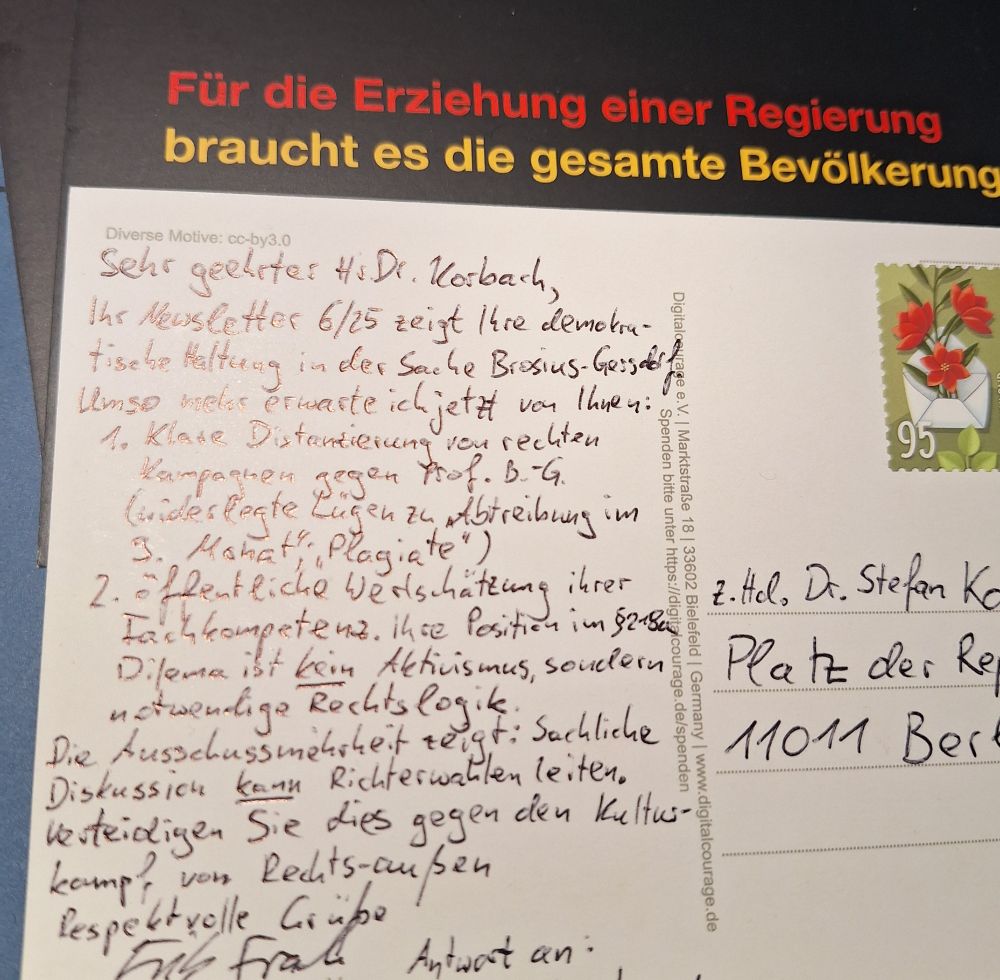 Für die Erziehung einer Regierung
braucht es die gesamte Bevölkerung
Diverse Motive: cc-by3.0
Sehr geehrter Hr. Dr. Korbach,
Ihr Newsletter 6/25 zeigt Ihre demokra-
tische Haltung in der Sache Brosius-Gersdorf.
Umso mehr erwarte ich jetzt von Ihnen:
1. Klare Distanzierung von rechten
Kampagnen gegen Prof. B.-G.
(widerlegte Lügen zu „Abtreibung im
9. Monat“, „Plagiate“)
2. öffentliche Wertschätzung ihrer
Fachkompetenz. Ihre Position im §218a
Dilema ist kein Aktivismus, sondern
notwendige Rechtslogik.
Die Ausschussmehrheit zeigt: Sachliche
Diskussion kann Richterwahlen leiten.
Verteidigen Sie dies gegen den Kultur-
kampf von Rechts-außen
Respektvolle Grüße
Antwort an:
Digitalcourage e.V. | Marktstraße 18 | 33602 Bielefeld | Germany | www.digitalcourage.de
Spenden bitte unter https://digitalcourage.de/spenden
95
z. Hd. Dr. Stefan Ko
Platz der Rep
11011 Berl